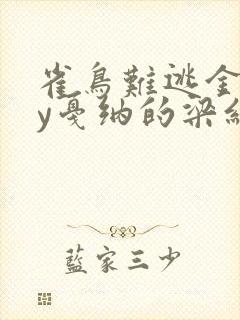 雀鳥難逃金
y戛纳的梁
藍家三少